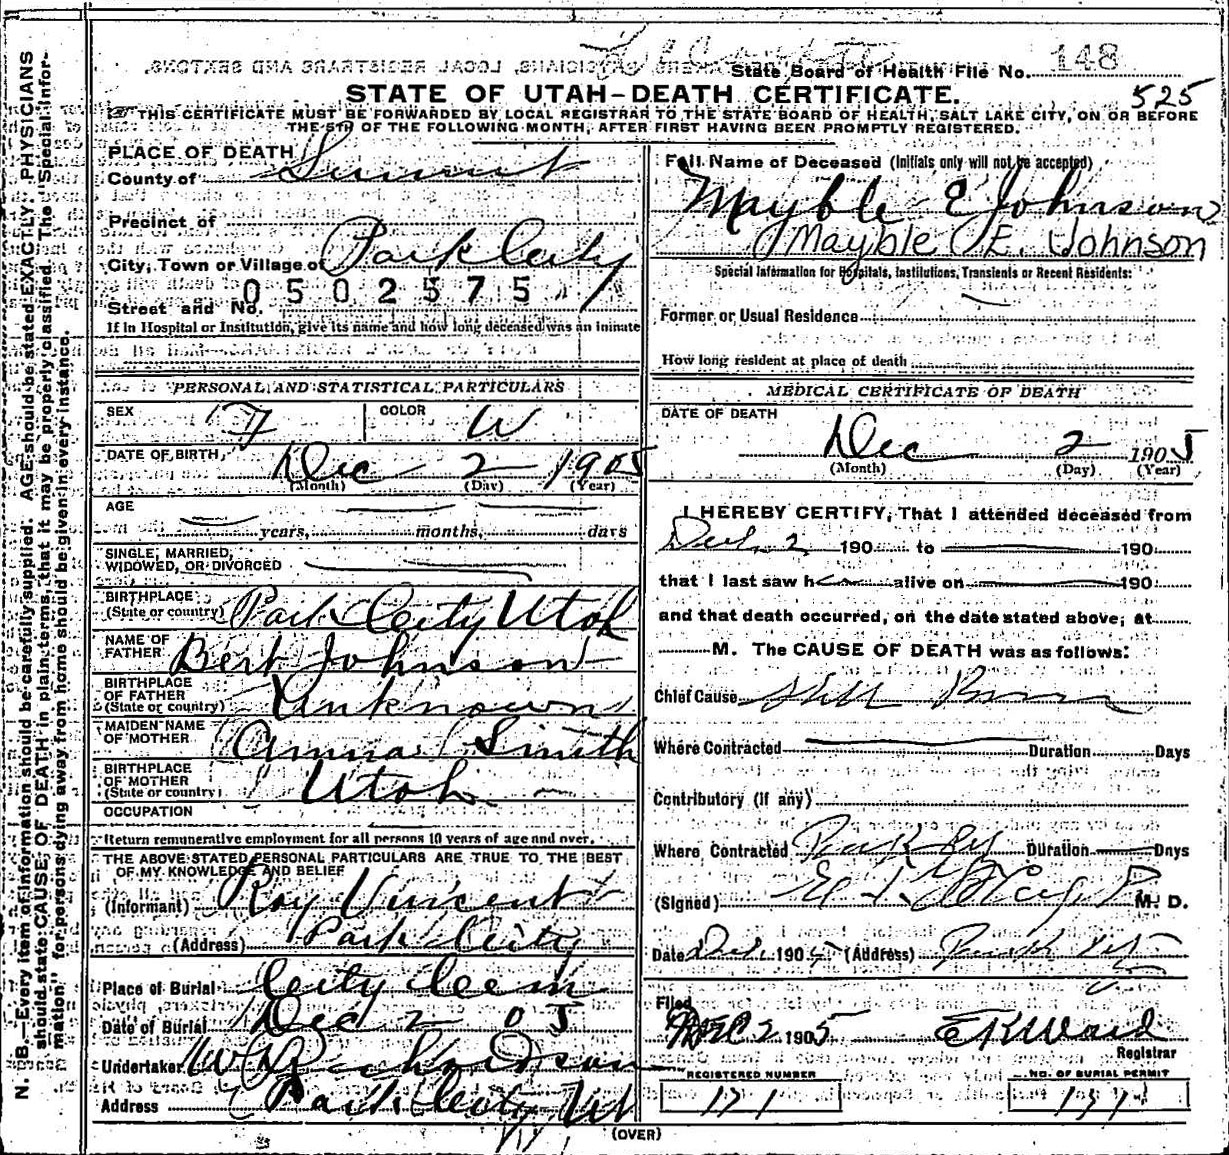 State Board of Health File No. 148
STATE OF UTAH-DEATH CERTIFICATE.
525
THIS CERTIFICATE MUST BE FORWARDED BY LOCAL REGISTRAR TO THE STATE BOARD OF HEALTH, SALT LAKE CITY, ON OR BEFORE
THE 5TH OF THE FOLLOWING MONTH, AFTER FIRST HAVING BEEN PROMPTLY REGISTERED.
N. B.—Every item of information should be carefully supplied. AGE should be stated EXACTLY. PHYSICIANS
should state CAUSE OF DEATH in plain terms, that it may be properly classified. The "Special Infor-
mation" for persons dying away from home should be given in every instance.
PLACE OF DEATH
County of Summit
Precinct of
City, Town or Village of Park City
0502575
Street and No.
If in Hospital or Institution, give its name and how long deceased was an inmate
PERSONAL AND STATISTICAL PARTICULARS
SEX F COLOR W
DATE OF BIRTH Dec 2 1905
(Month) (Day) (Year)
AGE
years, months, days
SINGLE, MARRIED,
WIDOWED, OR DIVORCED
BIRTHPLACE
(State or country) Park City Utah
NAME OF
FATHER Bert Johnson
BIRTHPLACE
OF FATHER
(State or country) Unknown
MAIDEN NAME
OF MOTHER Annna Smith
BIRTHPLACE
OF MOTHER
(State or country) Utah
OCCUPATION
Return remunerative employment for all persons 10 years of age and over.
THE ABOVE STATED PERSONAL PARTICULARS ARE TRUE TO THE BEST
OF MY KNOWLEDGE AND BELIEF
(Informant) Ray Vincent
(Address) Park City
Place of Burial City Cem
Date of Burial Dec 2 05
Undertaker W Richardson
Address Park City Ut
Full Name of Deceased (Initials only will not be accepted)
Mayble E Johnson
Mayble E. Johnson
Special Information for Hospitals, Institutions, Transients or Recent Residents:
Former or Usual Residence
How long resident at place of death
MEDICAL CERTIFICATE OF DEATH
DATE OF DEATH
Dec 2 1905
(Month) (Day) (Year)
I HEREBY CERTIFY, That I attended deceased from
Dec 2 190 to 190
that I last saw h alive on 190
and that death occurred, on the date stated above, at
M. The CAUSE OF DEATH was as follows:
Chief Cause Still Born
Where Contracted Duration Days
Contributory (if any)
Where Contracted Park City Duration Days
(Signed) M. D.
Date Dec. 1905 (Address) Park City
Filed
DEC 2 1905 E K Ward
Registrar
REGISTERED NUMBER NO. OF BURIAL PERMIT
171
(OVER)